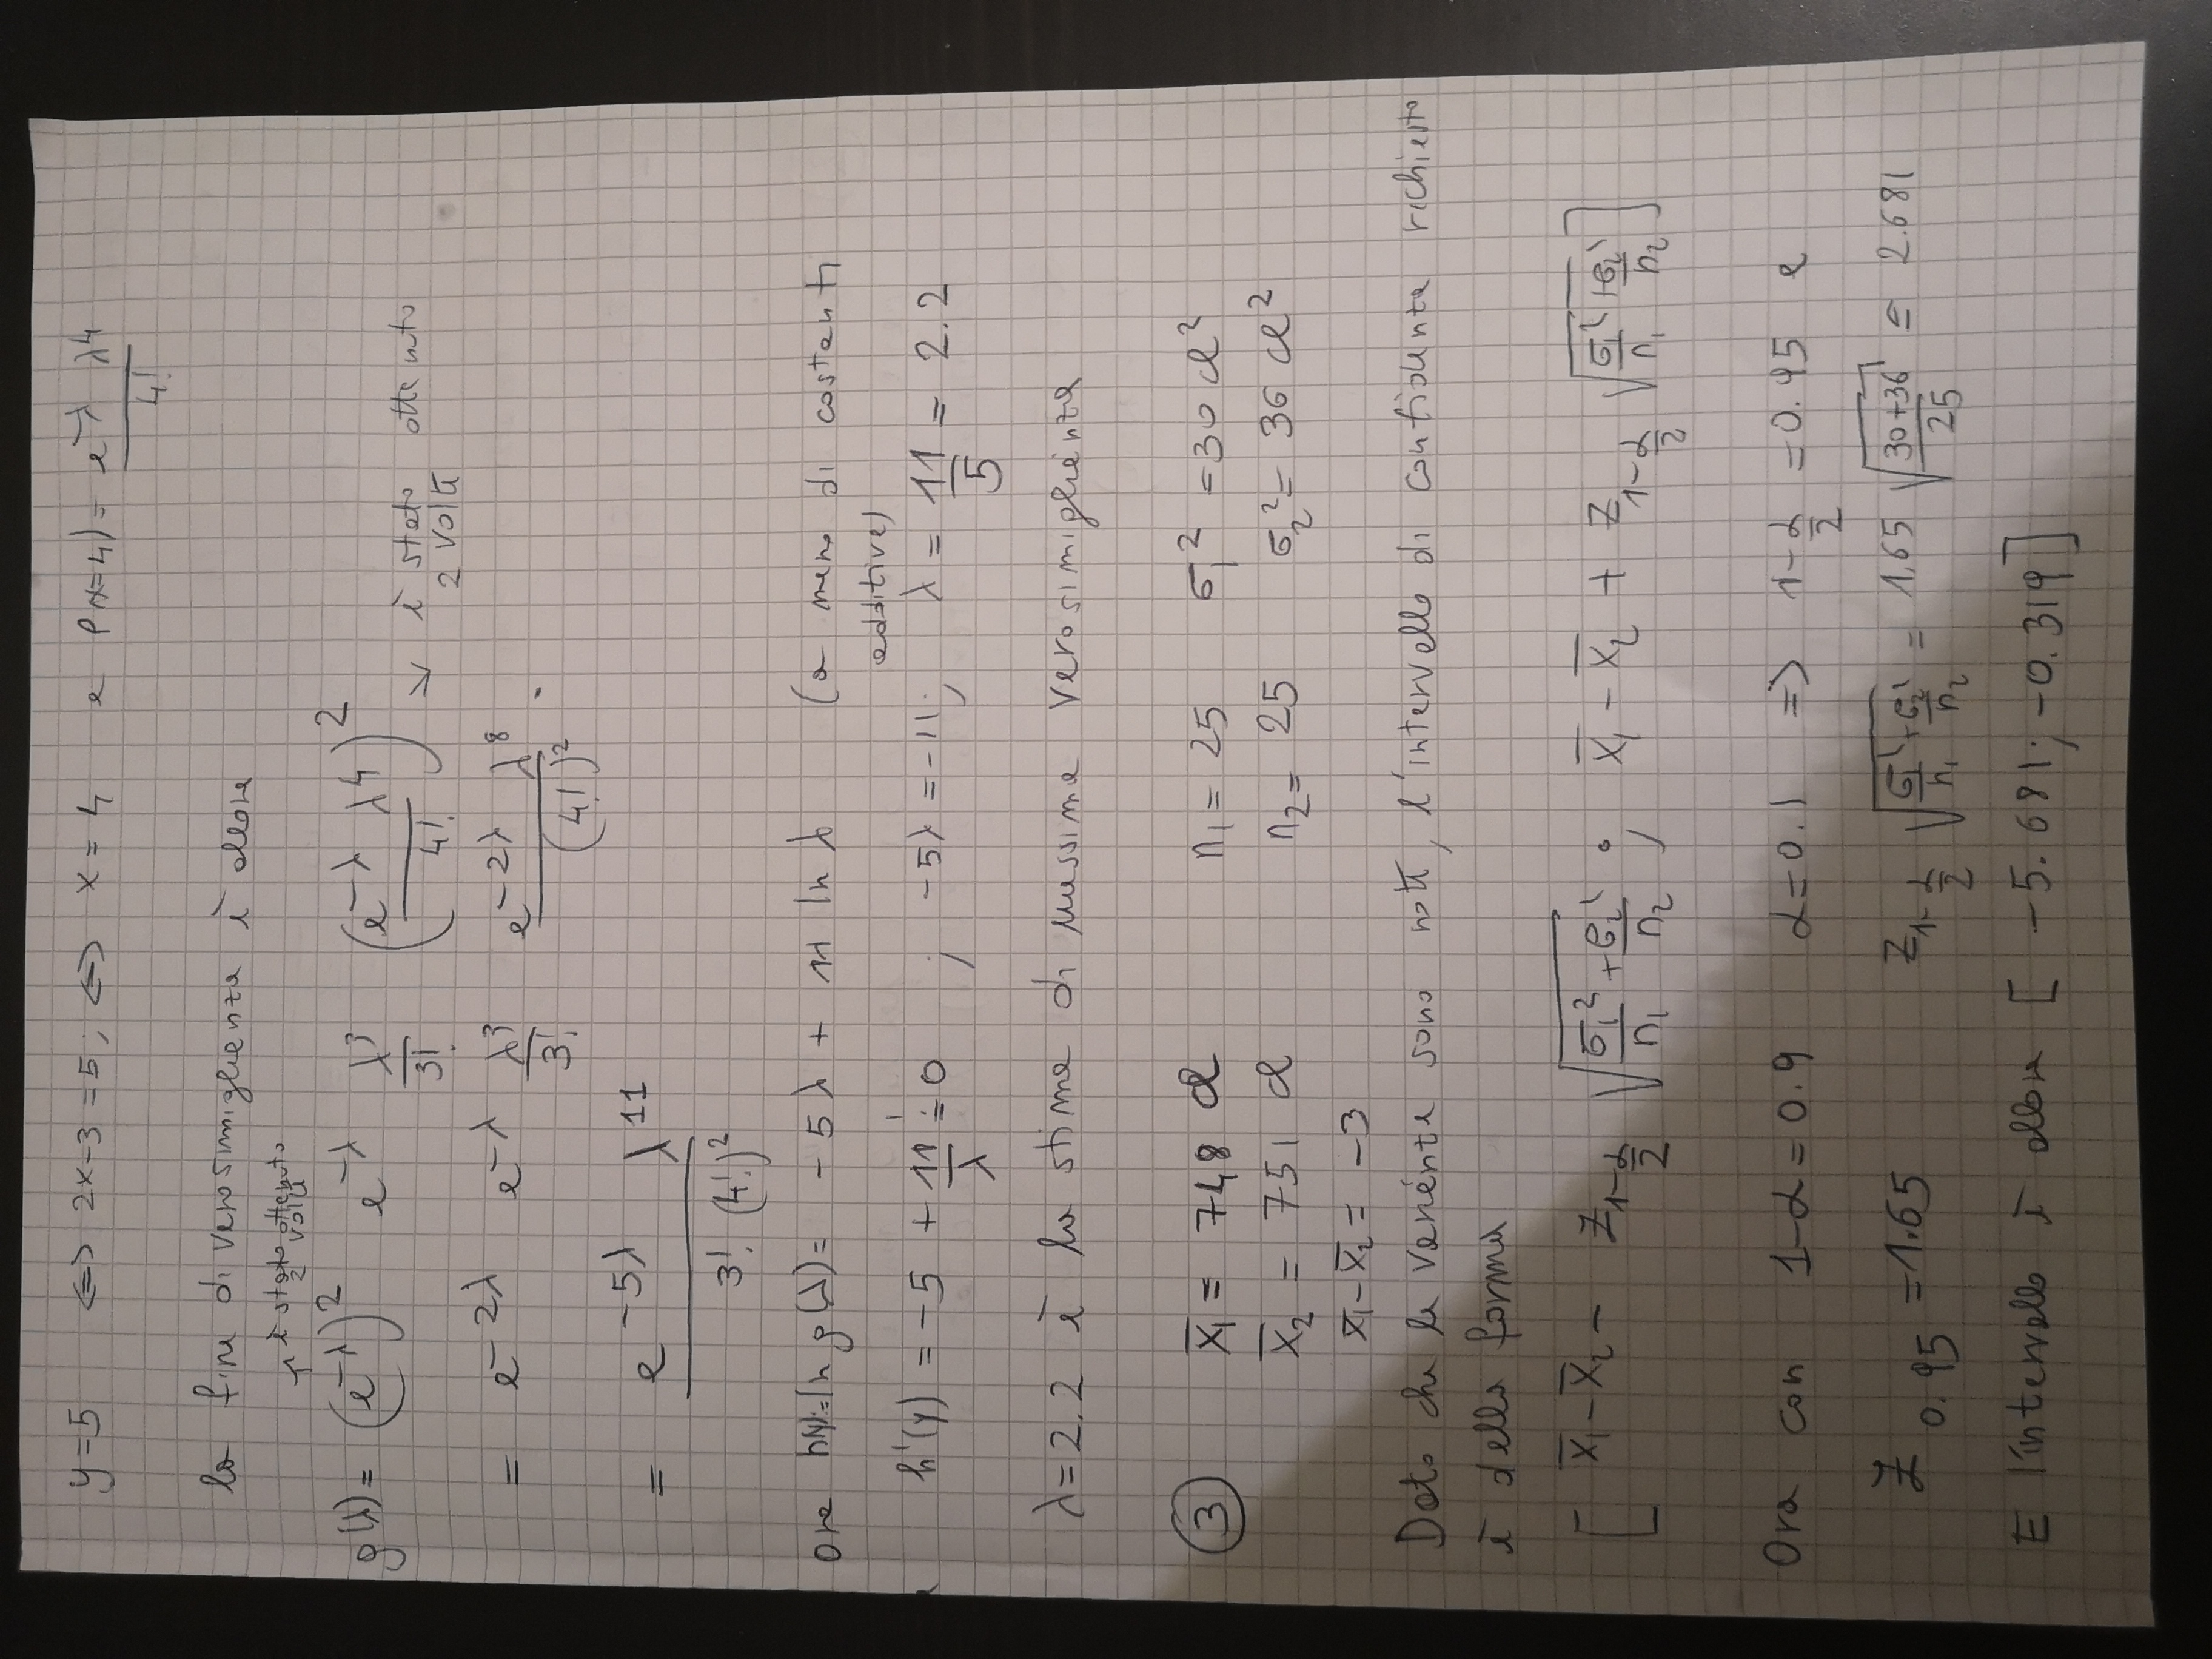 y=5 <=> 2x-3=5; <=> x=4 e P(x=4)= e^-λ λ^4 / 4!
la fine di verosimiglianza è allora
è stato ottenuto
2 volte
g(λ)= (e^-λ)^2 e^-λ λ^3/3! (e^-λ λ^4 / 4!)^2 ↘ è stato ottenuto
2 volte
= e^-2λ e^-λ λ^3/3! e^-2λ λ^8 / (4!)^2 .
= e^-5λ λ^11 / 3! (4!)^2
Ora ln g(λ)= -5λ + 11 ln λ (a meno di costanti
additive)
h'(y) = -5 + 11/λ = 0 ; -5λ = -11; λ = 11/5 = 2.2
λ=2.2 è la stima di massima verosimiglianza
③ x̄1 = 748 cl n1 = 25 σ1^2 = 30 cl^2
x̄2 = 751 cl n2 = 25 σ2^2 = 36 cl^2
x̄1-x̄2 = -3
Dato che le varianze sono note, l'intervallo di confidenza richiesto
è della forma
[ x̄1-x̄2 - z1-α/2 √(σ1^2/n1 + σ2^2/n2) ; x̄1-x̄2 + z1-α/2 √(σ1^2/n1 + σ2^2/n2) ]
Ora con 1-α=0.9 α=0.1 => 1-α/2 =0.95 e
z0.95 =1.65 z1-α/2 √(σ1^2/n1 + σ2^2/n2) = 1.65 √(30+36/25) = 2.681
E l'intervallo è allora [ -5.681; -0.319]